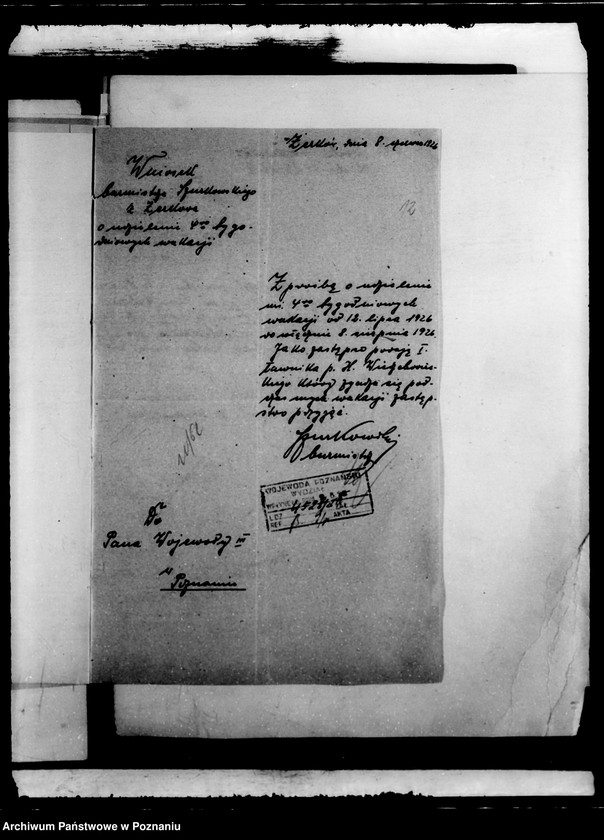 Żerków, dnia 8. czerwca 1926
12
Wniosek
burmistrza Szurkowskiego
z Żerkowa
o udzielenie 4ro tygo-
dniowych wakacji
Z prośbą o udzielenie
mi 4ro tygodniowych
wakacji od 12. lipca 1926
do włącznie 8. sierpnia 1926.
Jako zastępcę podaję I.
ławnika p. H.
który zgadza się pod-
czas mych wakacji zastęp-
stwo przyjąć.
Szurkowski
burmistrz
WOJEWODA POZNAŃSKI
WYDZIAŁ
L.DZ.
REF. AKTA
Do
Pana Wojewody
w Poznaniu
Archiwum Państwowe w Poznaniu